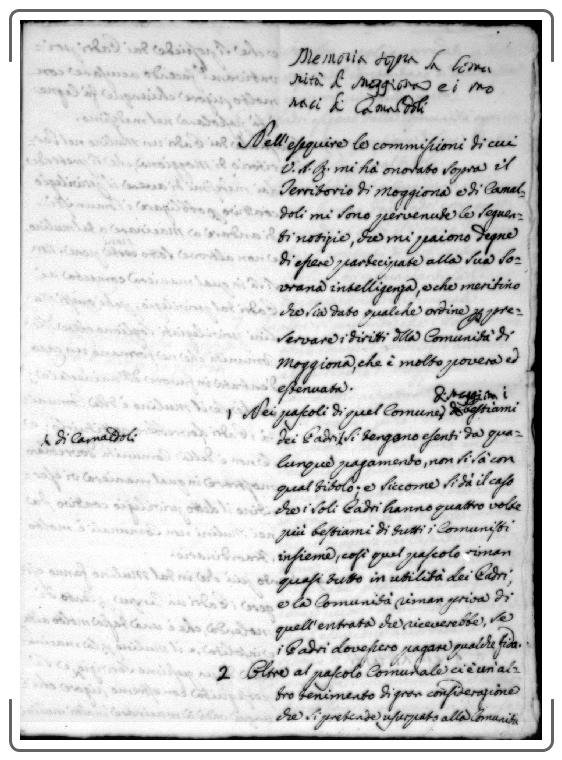 Memoria sopra la Comu
nità di Moggiona e i mo
naci di Camaldoli
Nell'eseguire le commissioni di cui
V. A. R. mi hà onorato sopra il
Territorio di Moggiona e di Camal-
doli mi sono pervenute le seguen-
ti notizie, che mi paiono degne
di essere partecipate alla Sua So-
vrana intelligenza, e che meritino
che sia dato qualche ordine per pre-
servare i diritti della Comunità di
Moggiona, che è molto povera ed
estenuata.
di Moggiona i
1 Nei pascoli di quel Comune, bestiami
di Camaldoli
dei Padri si tengano esenti da qua-
lunque pagamento, non si sà con
qual titolo; e siccome si dà il caso
che i soli Padri hanno quattro volte
più bestiami di tutti i Comunisti
insieme, così quel pascolo riman
quasi tutto in utilità dei Padri,
e la Comunità riman priva di
quell'entrata che riceverebbe, se
i Padri dovessero pagare qualche fida.
2 Oltre al pascolo Comunale ci è un al-
tro tenimento di gran considerazione
che si pretende usurpato alla Comunità